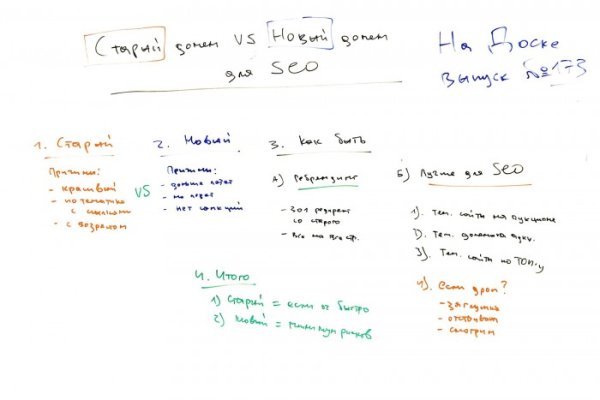 Старый домен VS Новый домен
для SEO
На Доске
выпуск №173
1. Старый
Причины:
- красивый
- по тематике
с ссылками
- с возрастом
VS
2. Новый
Причины:
- дольше
- на
- нет санкций
3. Как быть
А) Ребрендинг
- 301 редирект
со старого
- Все на все стр.
Б) Лучше для SEO
1). Тем. сайты на аукционе
2). Тем. домены аукц.
3). Тем. сайты по ТОП-у
4). Если дроп?
- заглушка
- отстаиваем
- смотрим
4. Итого
1) Старый = если ог быстро
2) Новый = минимум рисков